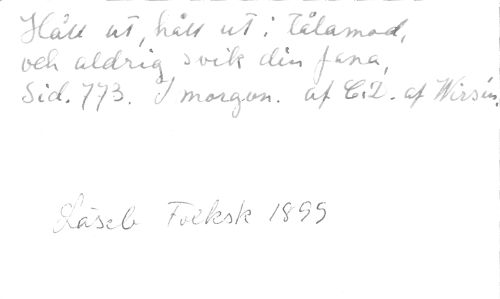 Håll ut, håll ut i tålamod,
och aldrig svik din fana,
Sid. 773. I morgon. af C.D. af Wirsén.
Läseb Folksk 1899